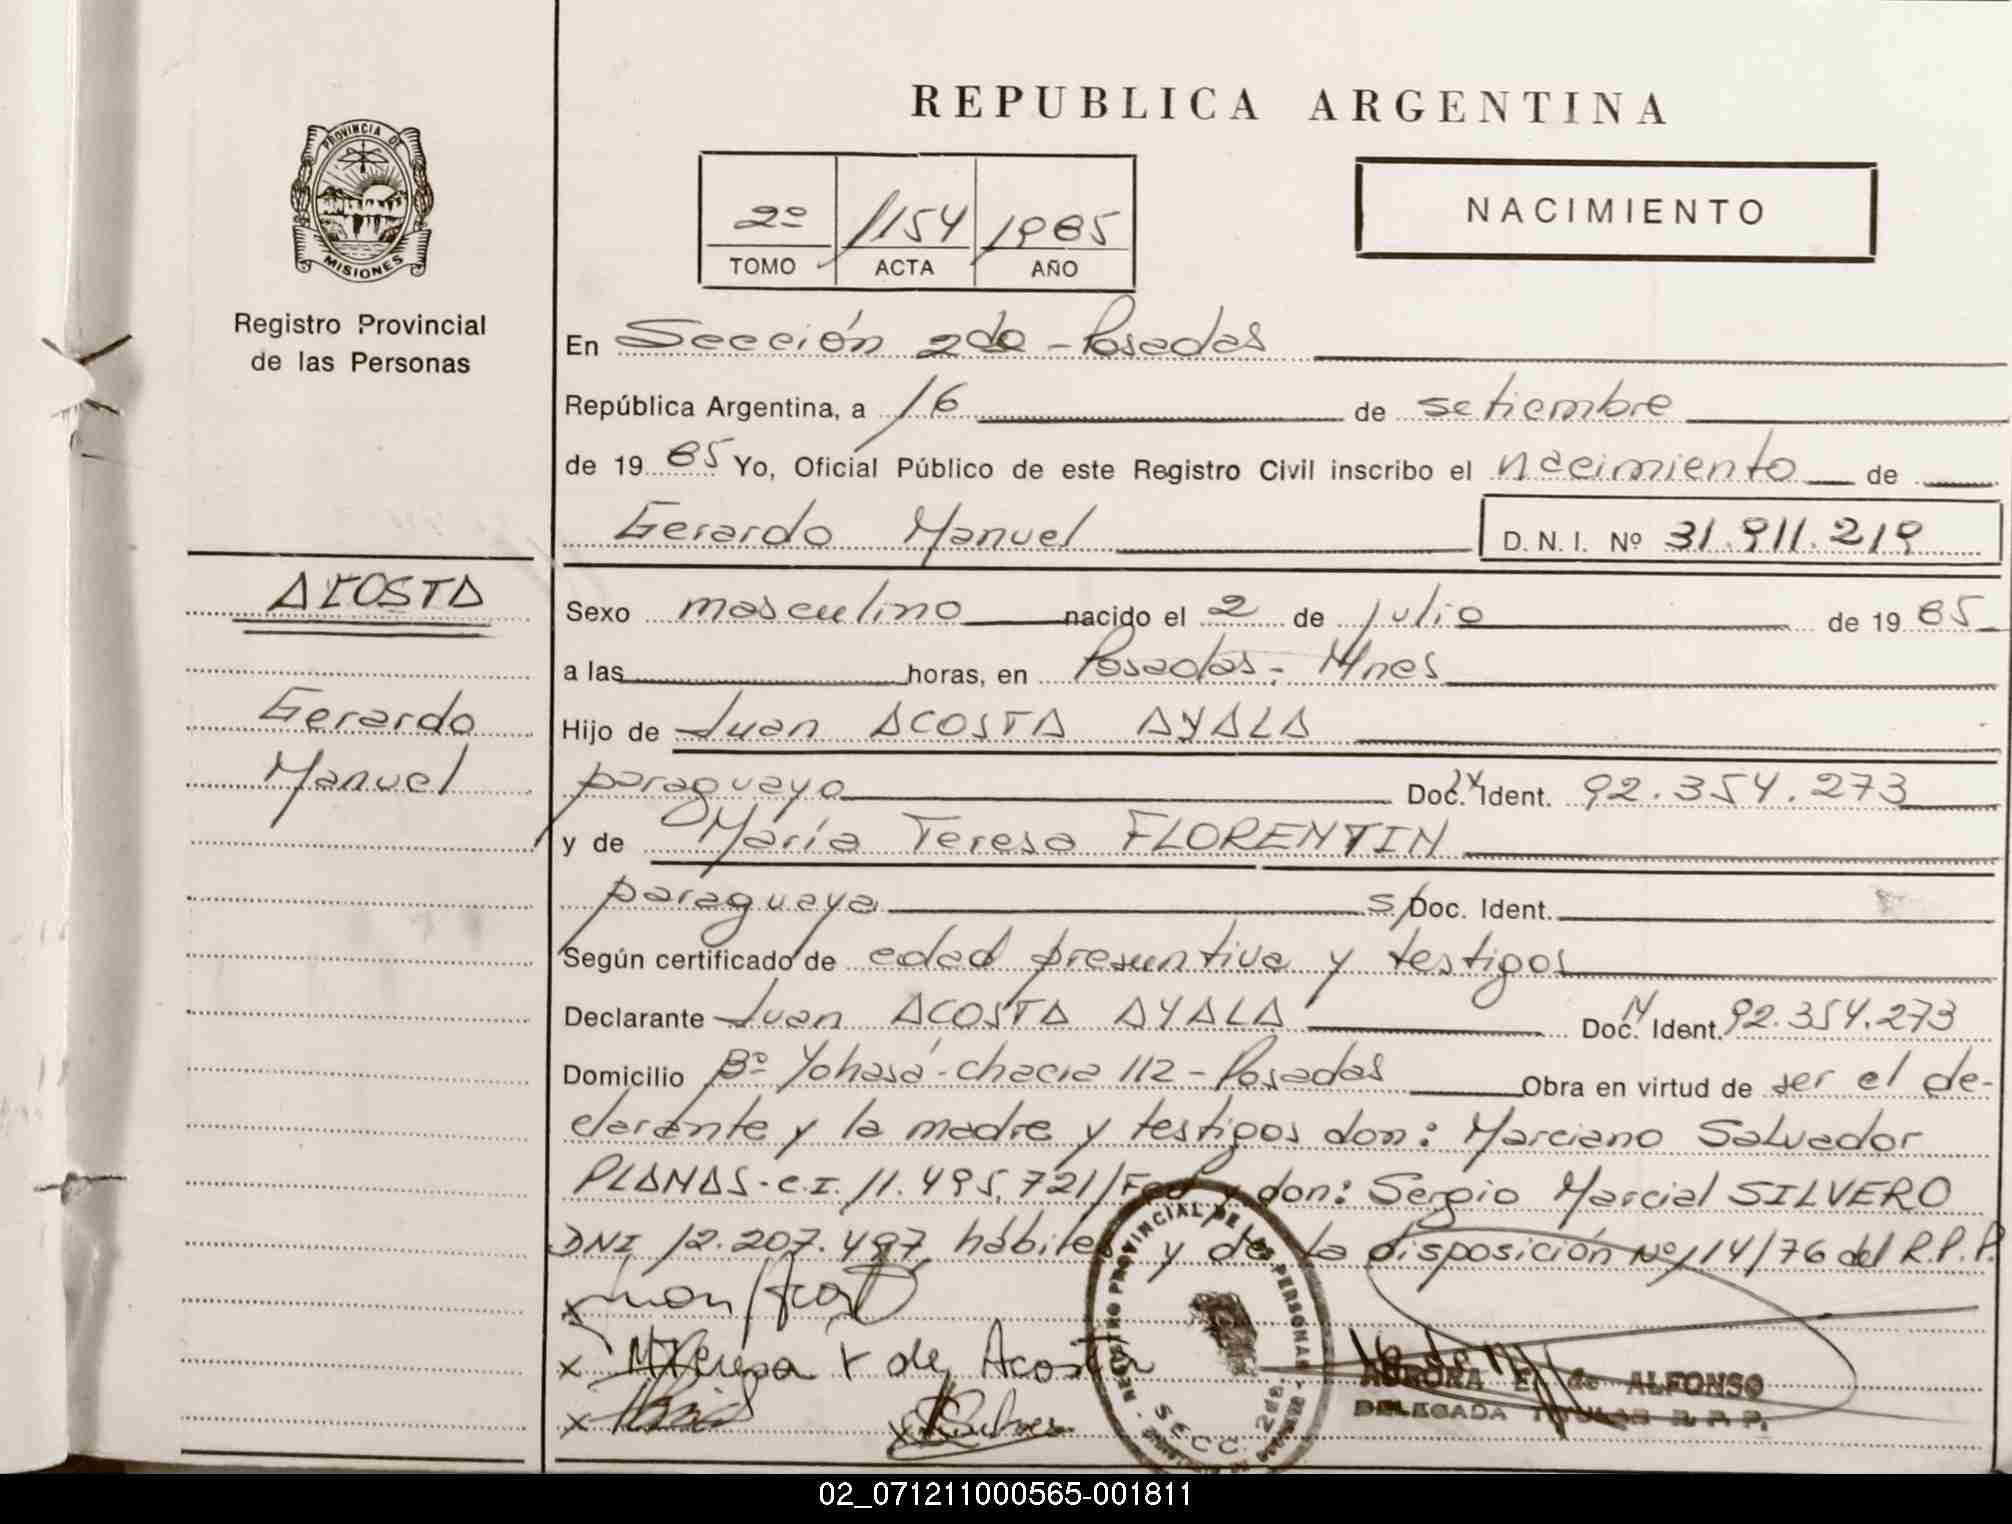 PROVINCIA DE
MISIONES
Registro Provincial
de las Personas
ACOSTA
Gerardo
Manuel
REPUBLICA ARGENTINA
2º 1154 1985
TOMO ACTA AÑO
NACIMIENTO
En Sección 2da - Posadas
República Argentina, a 16 de setiembre
de 19 85 Yo, Oficial Público de este Registro Civil inscribo el nacimiento de
Gerardo Manuel D. N. I. Nº 31.911.219
Sexo masculino nacido el 2 de julio de 19 85
a las horas, en Posadas - Mnes
Hijo de Juan ACOSTA AYALA
paraguayo Doc. Ident. 92.354.273
y de María Teresa FLORENTIN
paraguaya s/Doc. Ident.
Según certificado de edad presuntiva y testigos
Declarante Juan ACOSTA AYALA Doc. Ident. 92.354.273
Domicilio Bº Yohasá - chacra 112 - Posadas Obra en virtud de ser el de-
clarante y la madre y testigos don: Marciano Salvador
PLANAS - C.I. 11.495.721/Fed y don: Sergio Marcial SILVERO
DNI 12.207.497 hábiles y de la disposición Nº 114/76 del R.P.P.
x
x M Teresa F de Acosta
x x
REGISTRO PROVINCIAL DE LAS PERSONAS
SECC. 2da.
AURORA E. de ALFONSO
DELEGADA TITULAR R. P. P.
02_071211000565-001811